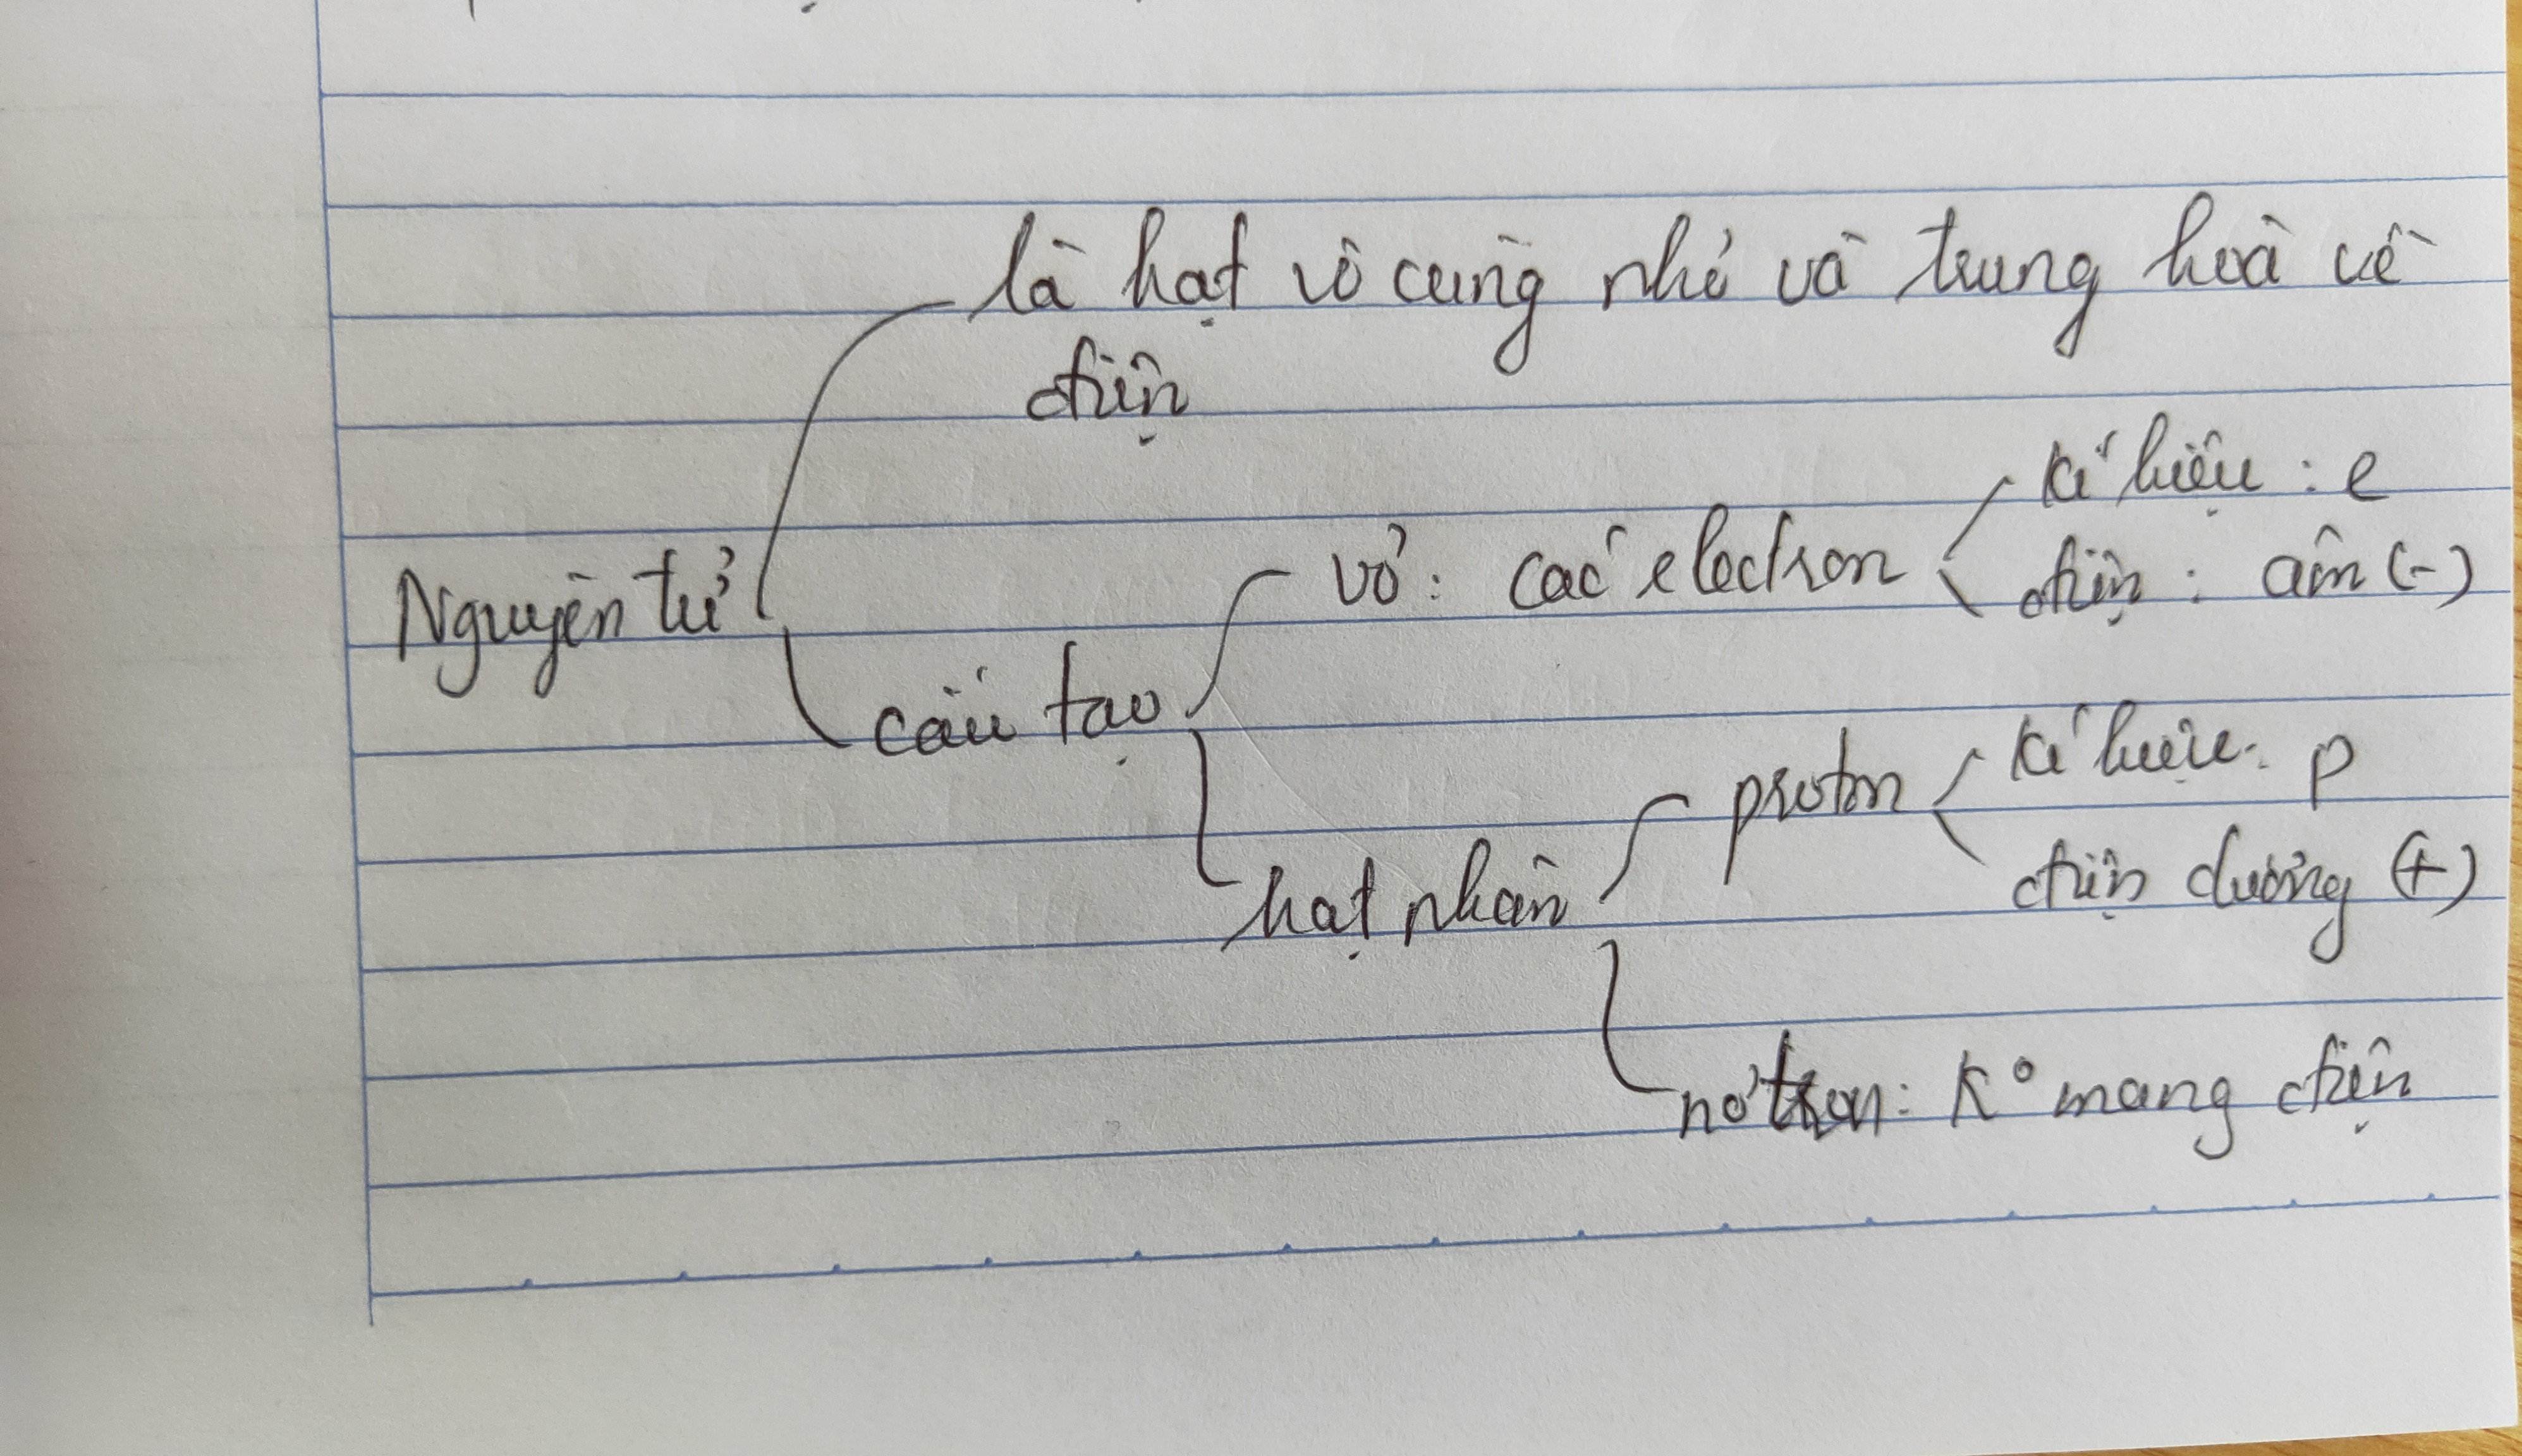 là hạt vô cùng nhỏ và trung hoà về
điện
kí hiệu : e
Nguyên tử
vỏ : các electron
điện : âm (-)
cấu tạo
proton
kí hiệu : p
hạt nhân
điện dương (+)
nơtron : k° mang điện